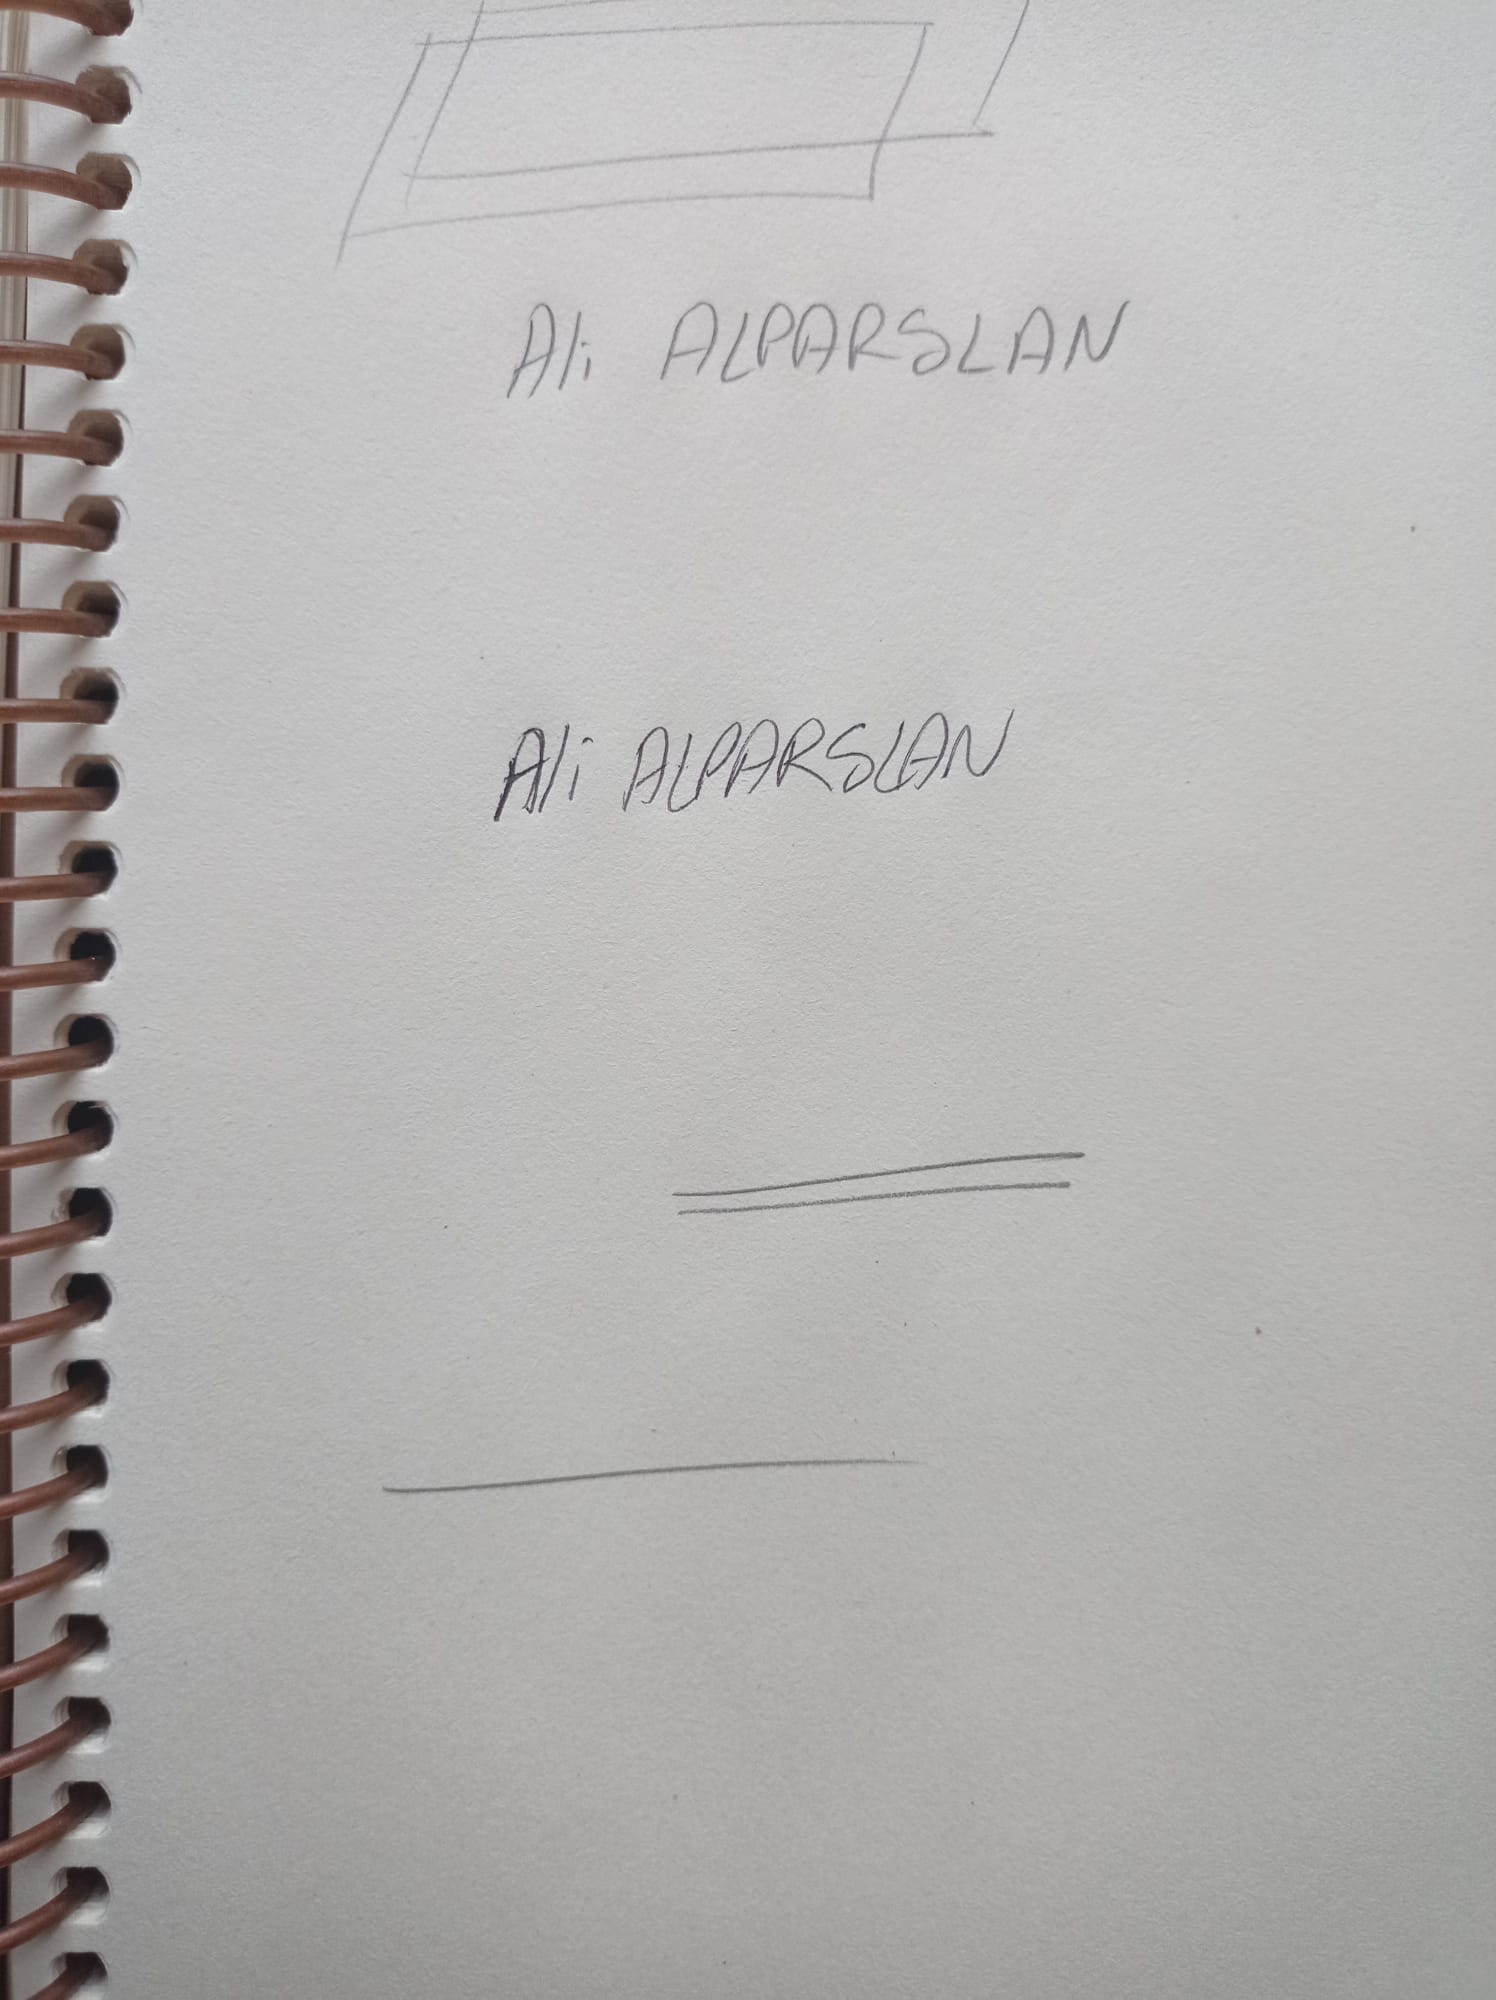 Ali ALPARSLAN
Ali ALPARSLAN